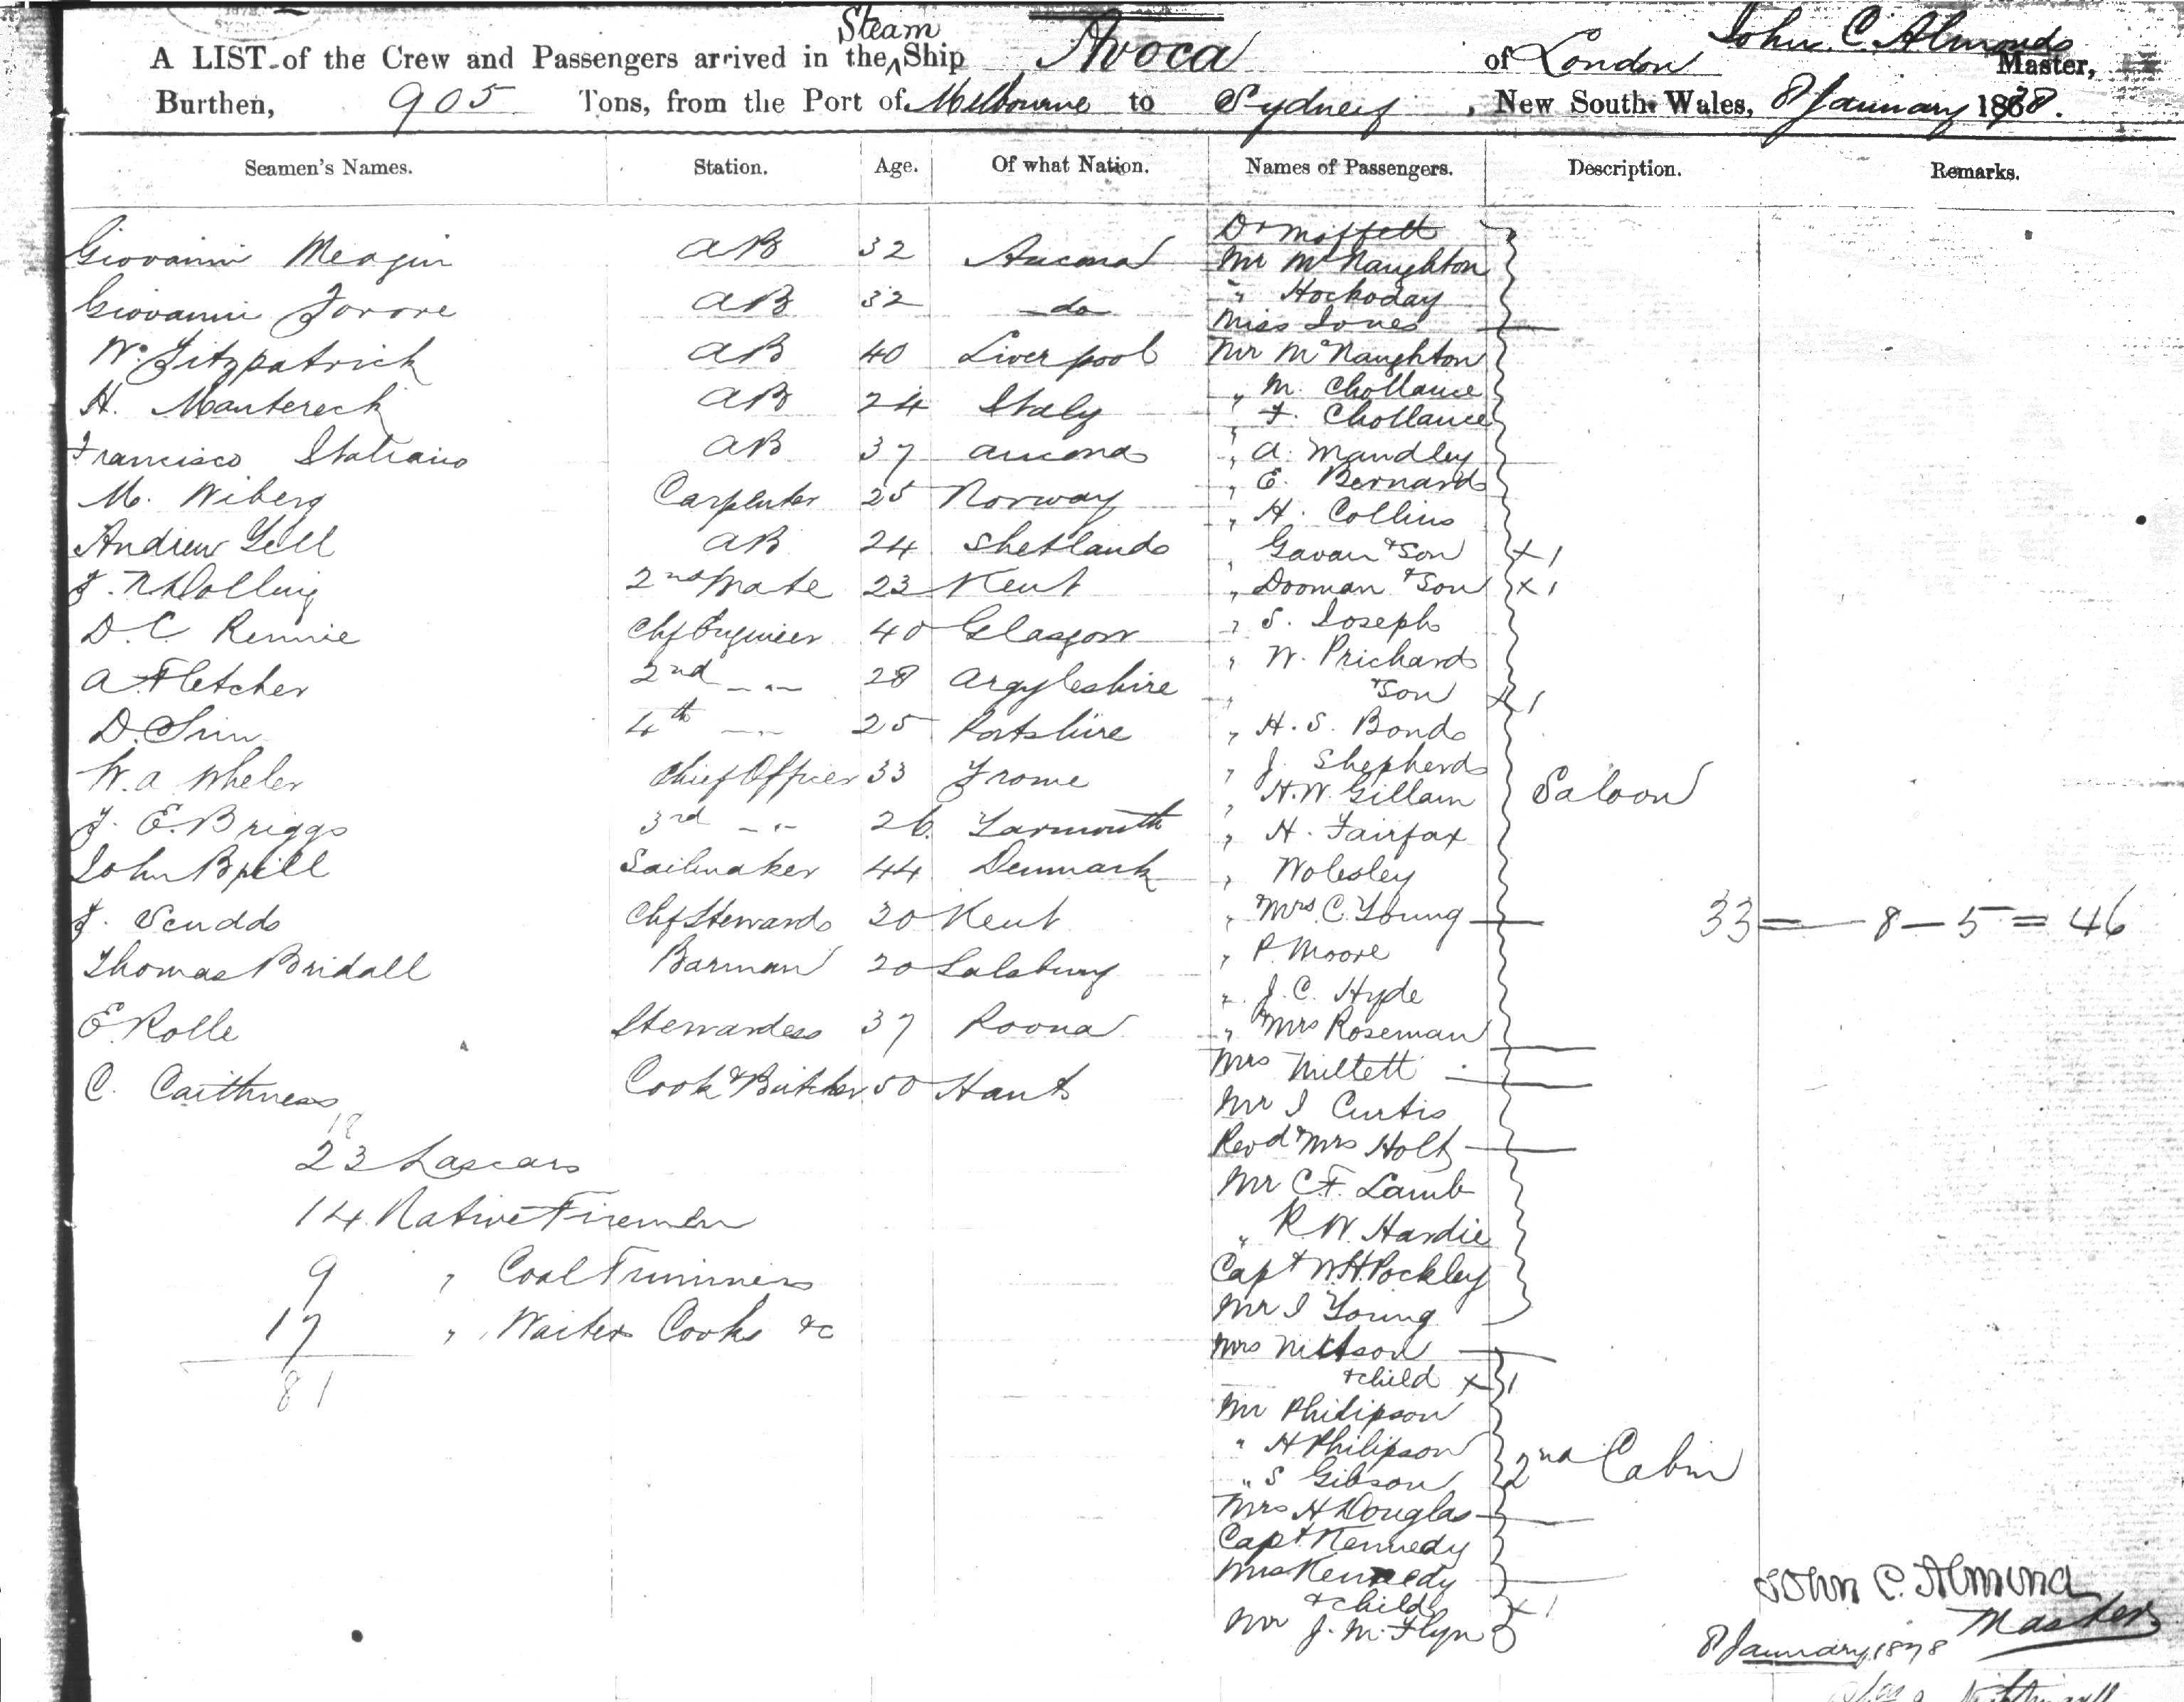 Steam
A LIST of the Crew and Passengers arrived in the ^ Ship Avoca of London John C. Almond Master,
Burthen, 905 Tons, from the Port of Melbourne to Sydney, New South Wales, 8 January 1878.
Seamen's Names. Station. Age. Of what Nation. Names of Passengers. Description. Remarks.
Giovanni Meagin AB 32 Ancona
Giovanni AB 32 do
W. Fitzpatrick AB 40 Liverpool
H. AB 24 Italy
Francisco AB 37 Ancona
M. Wiberg Carpenter 25 Norway
Andrew Gell AB 24 Shetlands
2nd Mate 23 Kent
D. C. Rennie Chf Engineer 40 Glasgow
A Fletcher 2nd -"- 28 Argyleshire
D. Sim 4th -"- 25
W. A Wheler Chief Officer 33 Frome
J. E. Briggs 3rd -"- 26. Yarmouth
John Sailmaker 44 Denmark
J. Scudds Chf Stewards 20 Kent
Thomas Bridall Barman 20 Salsbury
E. Rolle Stewardess 37 Poona
C. Caithness Cook & Butcher 50 Hants
18
23 Lascars
14 Native Firemen
9 " Coal Trimmers
17 " Waiters Cooks &c
81
Dr Moffett
Mr McNaughton
" Hockoday
Miss Jones
Mr McNaughton
" M. Chollance
" F. Chollance
" A. Mandley
" E. Bernard
" H. Collins
" Gavan & Son x 1
" Dooman & Son x 1
" S. Joseph
" W. Prichard
" & Son x 1
" H. S. Bond
" J. Shepherd
" H. W. Gillam
" H. Fairfax
" Wolesley
" & Mrs C. Young
" P. Moore
" J. C. Hyde
" & Mrs Roseman
Mrs Millett
Mr J Curtis
Revd & Mrs Holt
Mr C F. Lamb
" R. W. Hardie
Capt W. H. Pockley
Mr J Young
Saloon
33 = — 8 — 5 = 46
Mrs
& child x 1
Mr Philipson
" H Philipson
" S Gibson
Mrs H Douglas
Capt Kennedy
Mrs Kennedy
& child x 1
Mr J. M. Flyn
2nd Cabin
John C. Almond
Master
8 January 1878